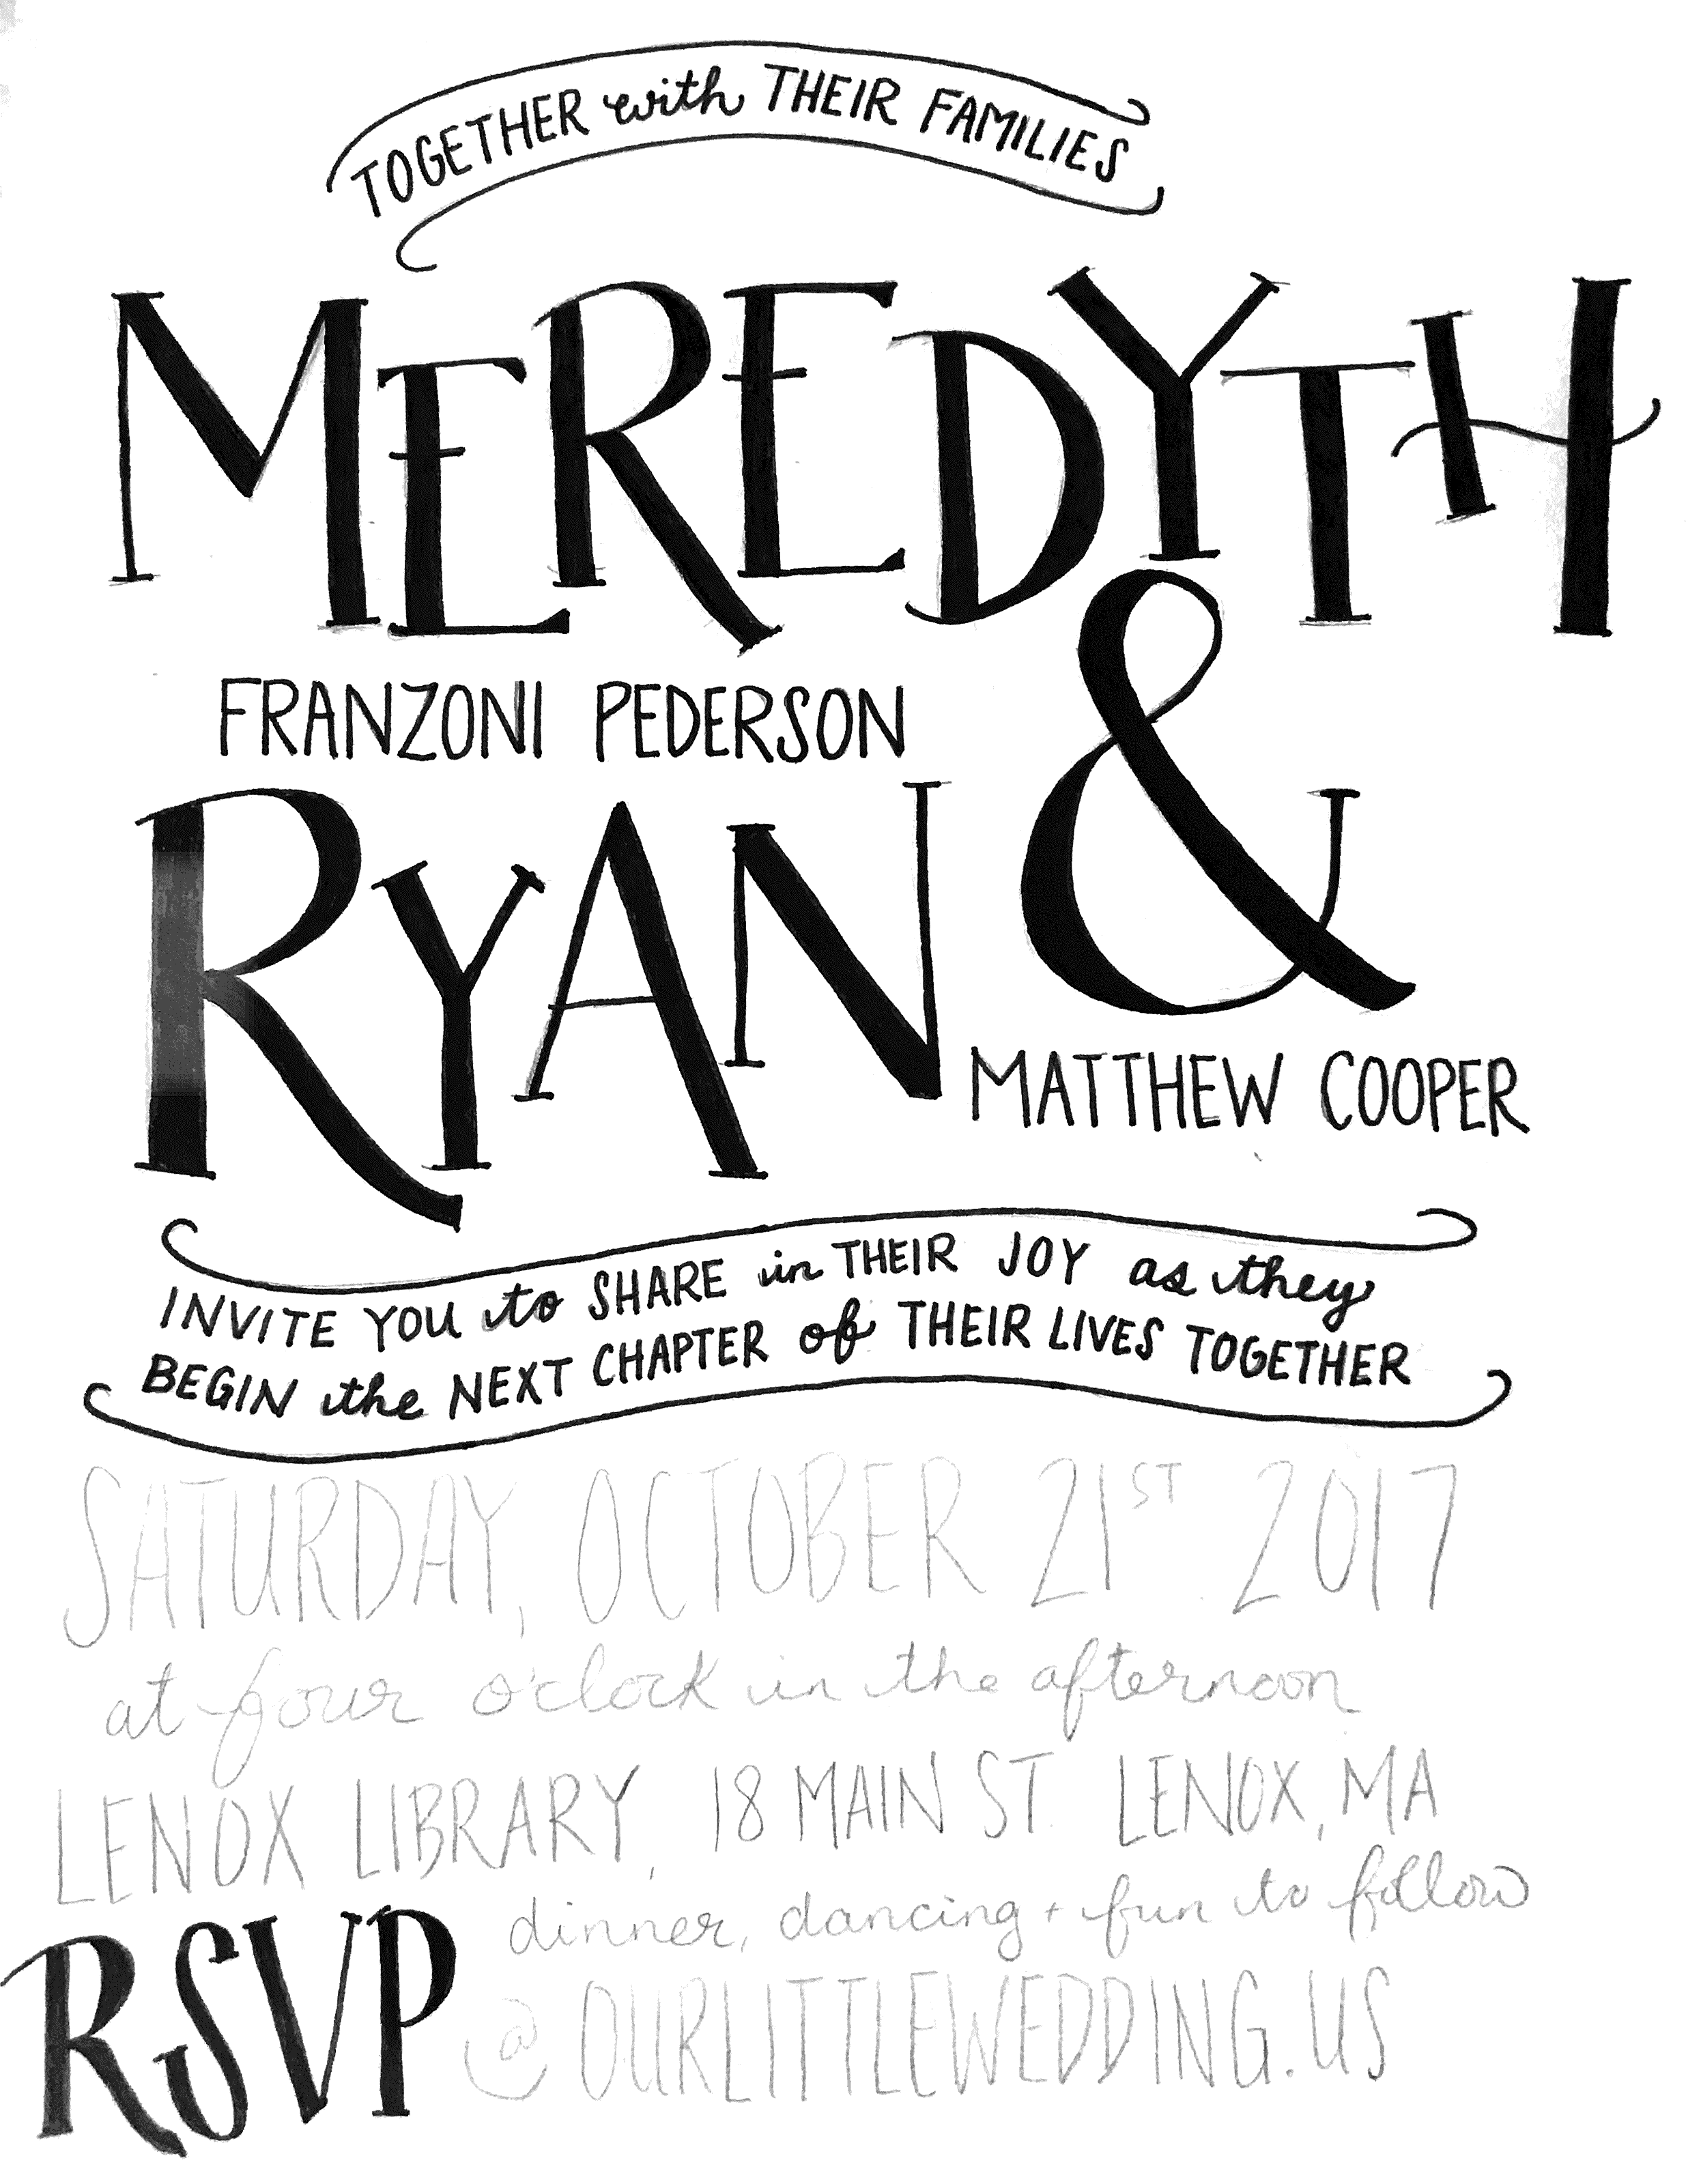 TOGETHER with THEIR FAMILIES
MEREDYTH
FRANZONI PEDERSON
&
RYAN
MATTHEW COOPER
INVITE YOU to SHARE in THEIR JOY as they
BEGIN the NEXT CHAPTER of THEIR LIVES TOGETHER
SATURDAY, OCTOBER 21ST 2017
at four o'clock in the afternoon
LENOX LIBRARY, 18 MAIN ST. LENOX, MA
dinner, dancing + fun to follow
RSVP @ OURLITTLEWEDDING.US